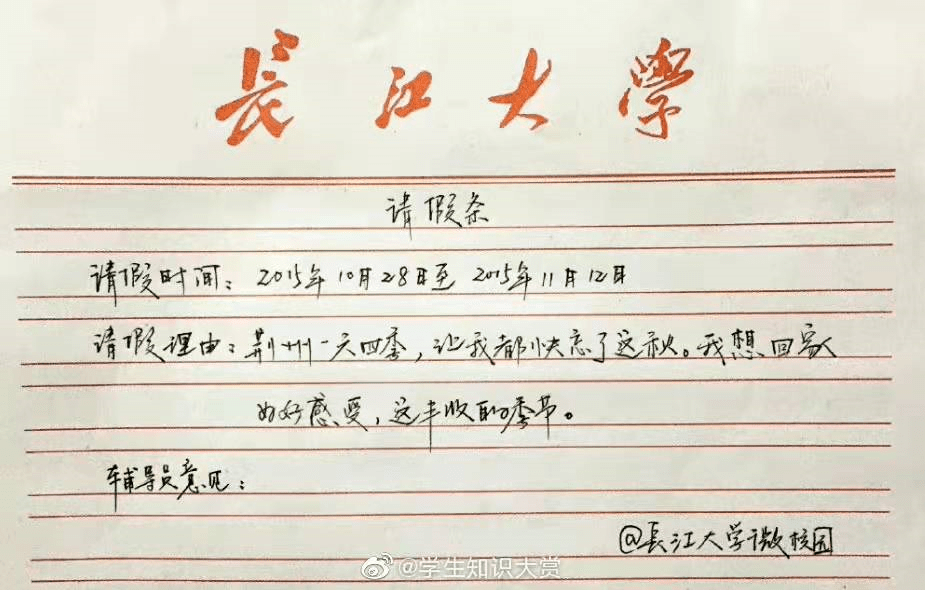 長江大學
请假条
请假时间：2015年10月28日至2015年11月12日
请假理由：荆州一天四季，让我都快忘了这秋。我想回家
好好感受，这丰收的季节。
辅导员意见：
@長江大学微校园
@学生知识大赏